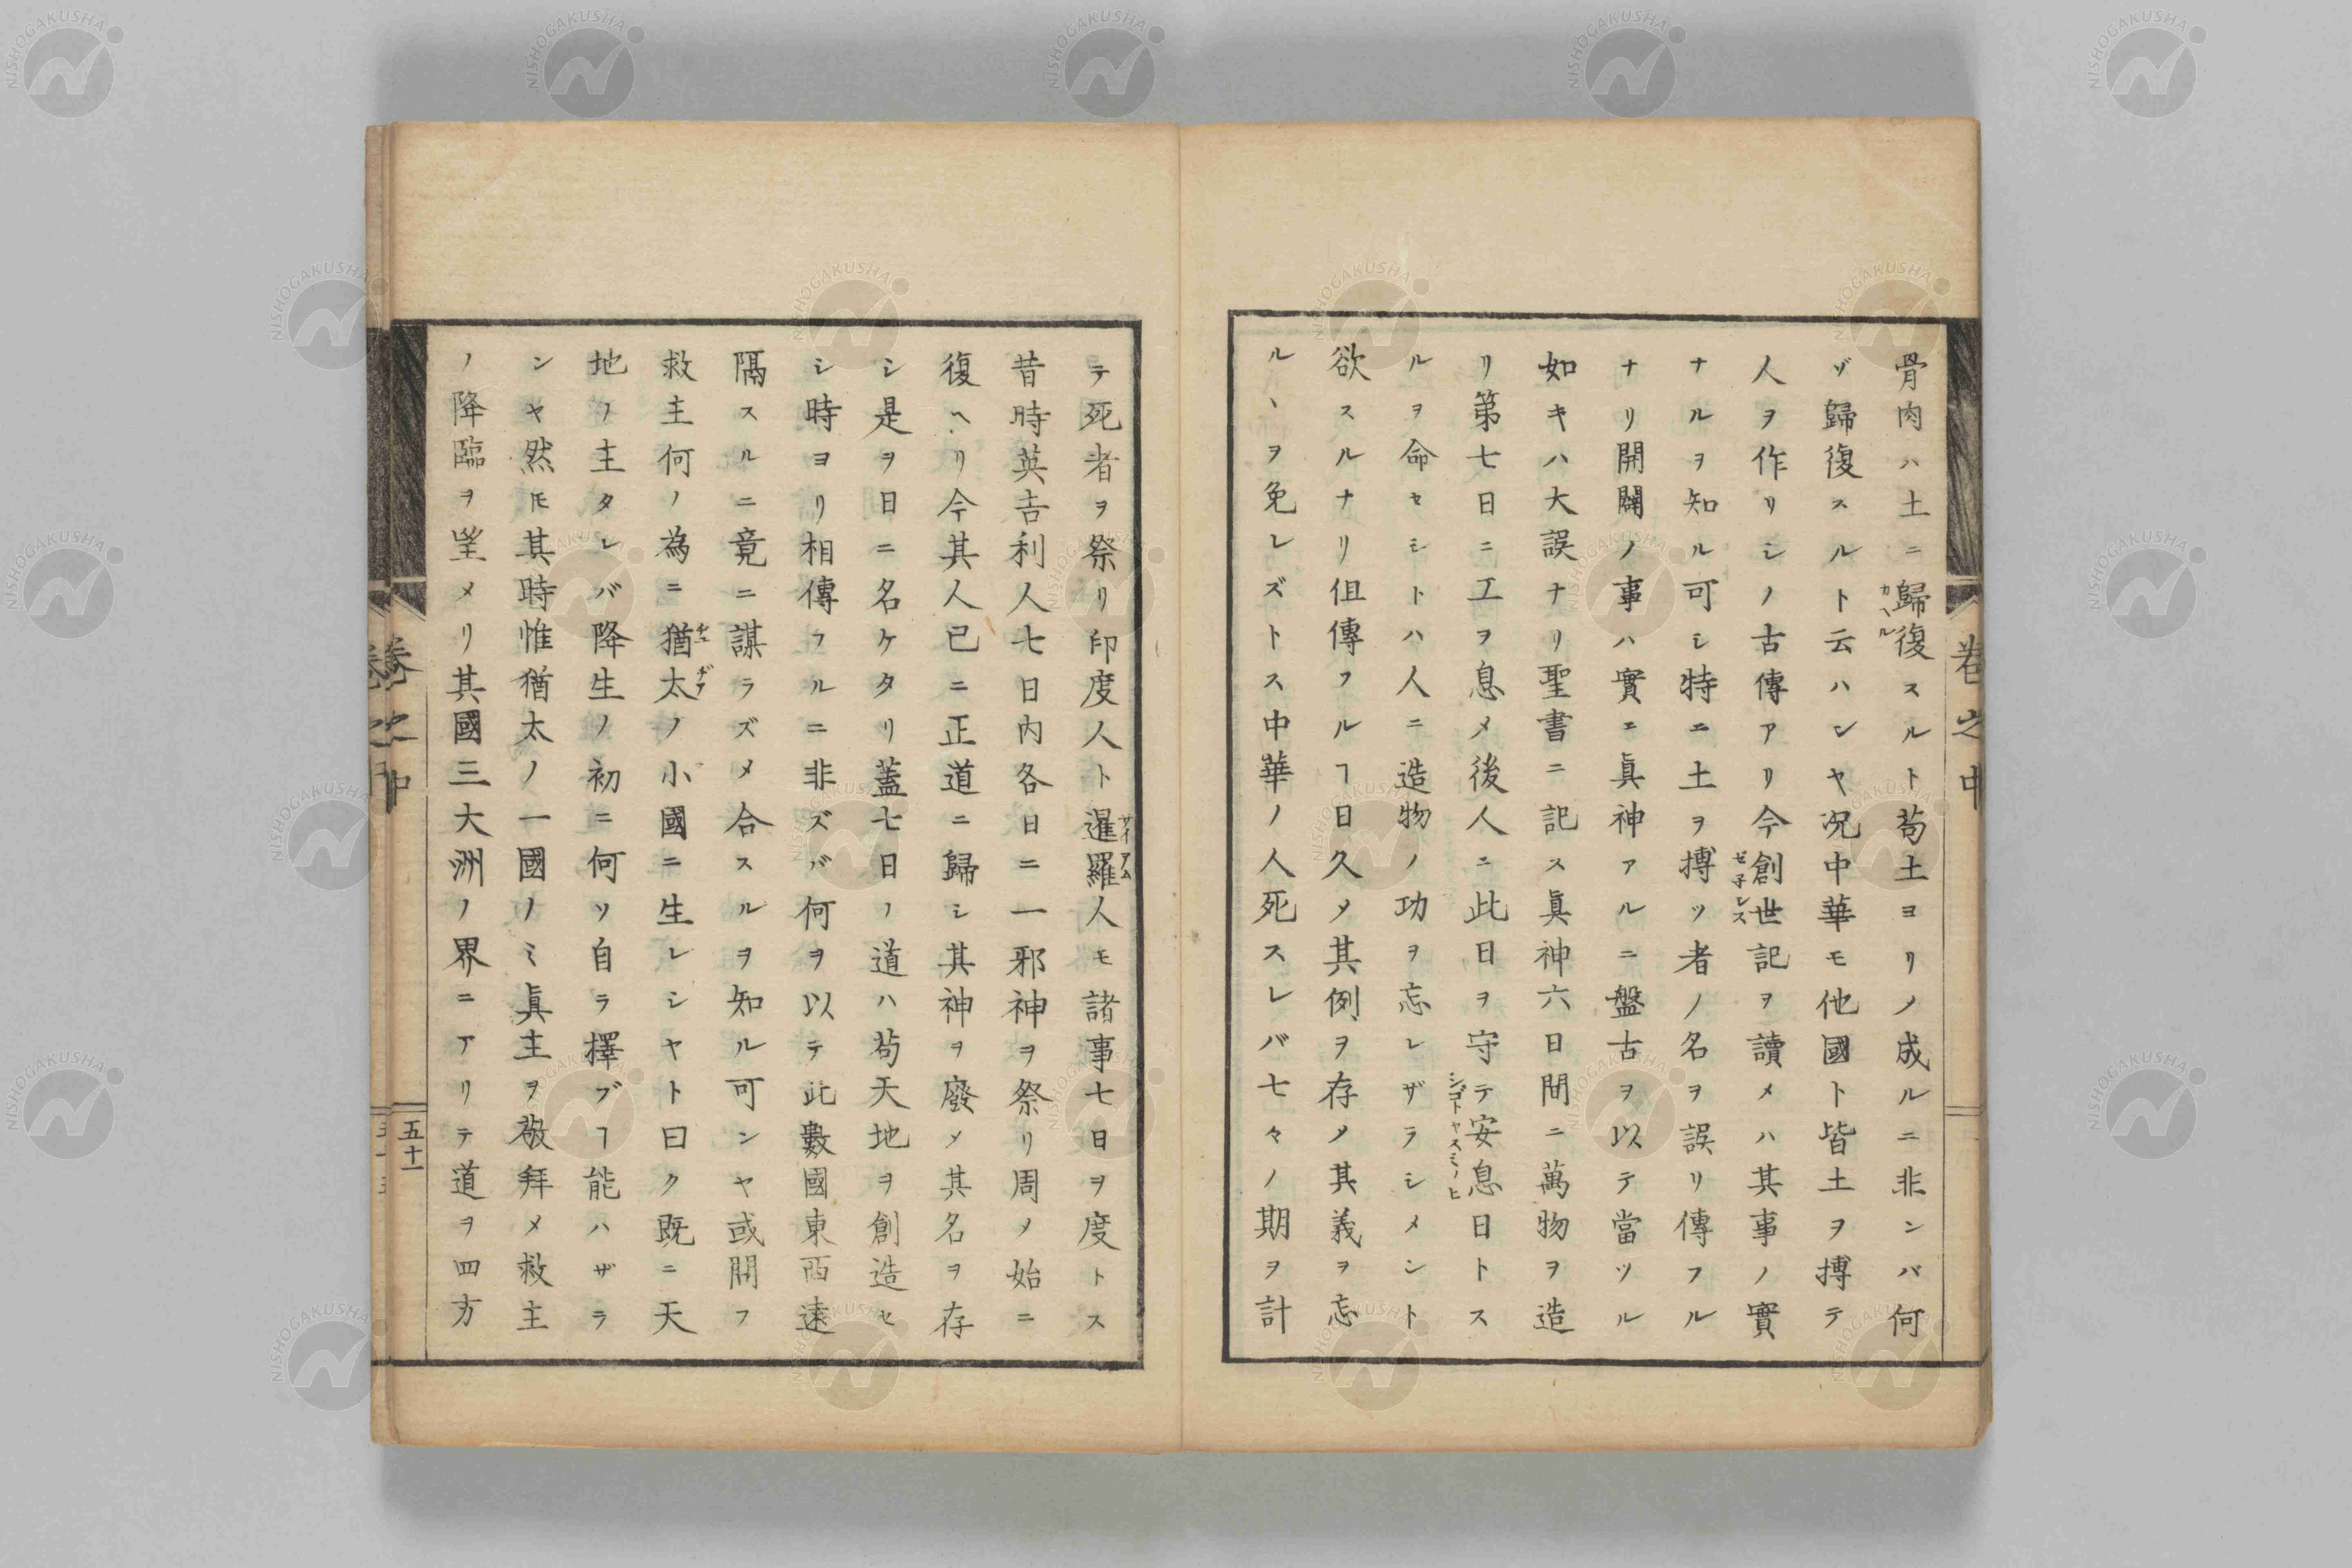 骨肉ハ土ニ歸復スルト苟土ヨリノ成ルニ非ンバ何
カヘル
ゾ歸復スルト云ハンヤ况中華モ他國ト皆土ヲ摶テ
人ヲ作リシノ古傳アリ今創世記ヲ讀メハ其事ノ實
ゼ子シス
ナルヲ知ル可シ特ニ土ヲ摶ツ者ノ名ヲ誤リ傳フル
ナリ開闢ノ事ハ實ニ眞神アルニ盤古ヲ以テ當ツル
如キハ大誤ナリ聖書ニ記ス眞神六日間ニ萬物ヲ造
リ第七日ニ工ヲ息メ後人ニ此日ヲ守テ安息日トス
シゴトヤスミノヒ
ルヲ命セシトハ人ニ造物ノ功ヲ忘レザラシメント
欲スルナリ伹傳フルヿ日久メ其例ヲ存メ其義ヲ忘
ルヽヲ免レズトス中華ノ人死スレバ七々ノ期ヲ計
卷之中
テ死者ヲ祭リ印度人ト暹羅人モ諸事七日ヲ度トス
サイアム
昔時英吉利人七日内各日ニ一邪神ヲ祭リ周メ始ニ
復ヘリ今其人已ニ正道ニ歸シ其神ヲ廢メ其名ヲ存
シ是ヲ日ニ名ケタリ蓋七日ノ道ハ苟天地ヲ創造セ
シ時ヨリ相傳フルニ非ズバ何ヲ以テ此數國東西遠
隔スルニ竟ニ謀ラズメ合スルヲ知ル可ンヤ或問フ
救主何ノ為ニ猶太ノ小國ニ生レシヤト曰ク既ニ天
ヂュ ヂア
地ノ主タレバ降生ノ初ニ何ソ自ラ擇ブヿ能ハザラ
ンヤ然𪜈其時惟猶太ノ一國ノミ眞主ヲ敬拜メ救主
ノ降臨ヲ望メリ其國三大洲ノ界ニアリテ道ヲ四方
卷之中
五十一